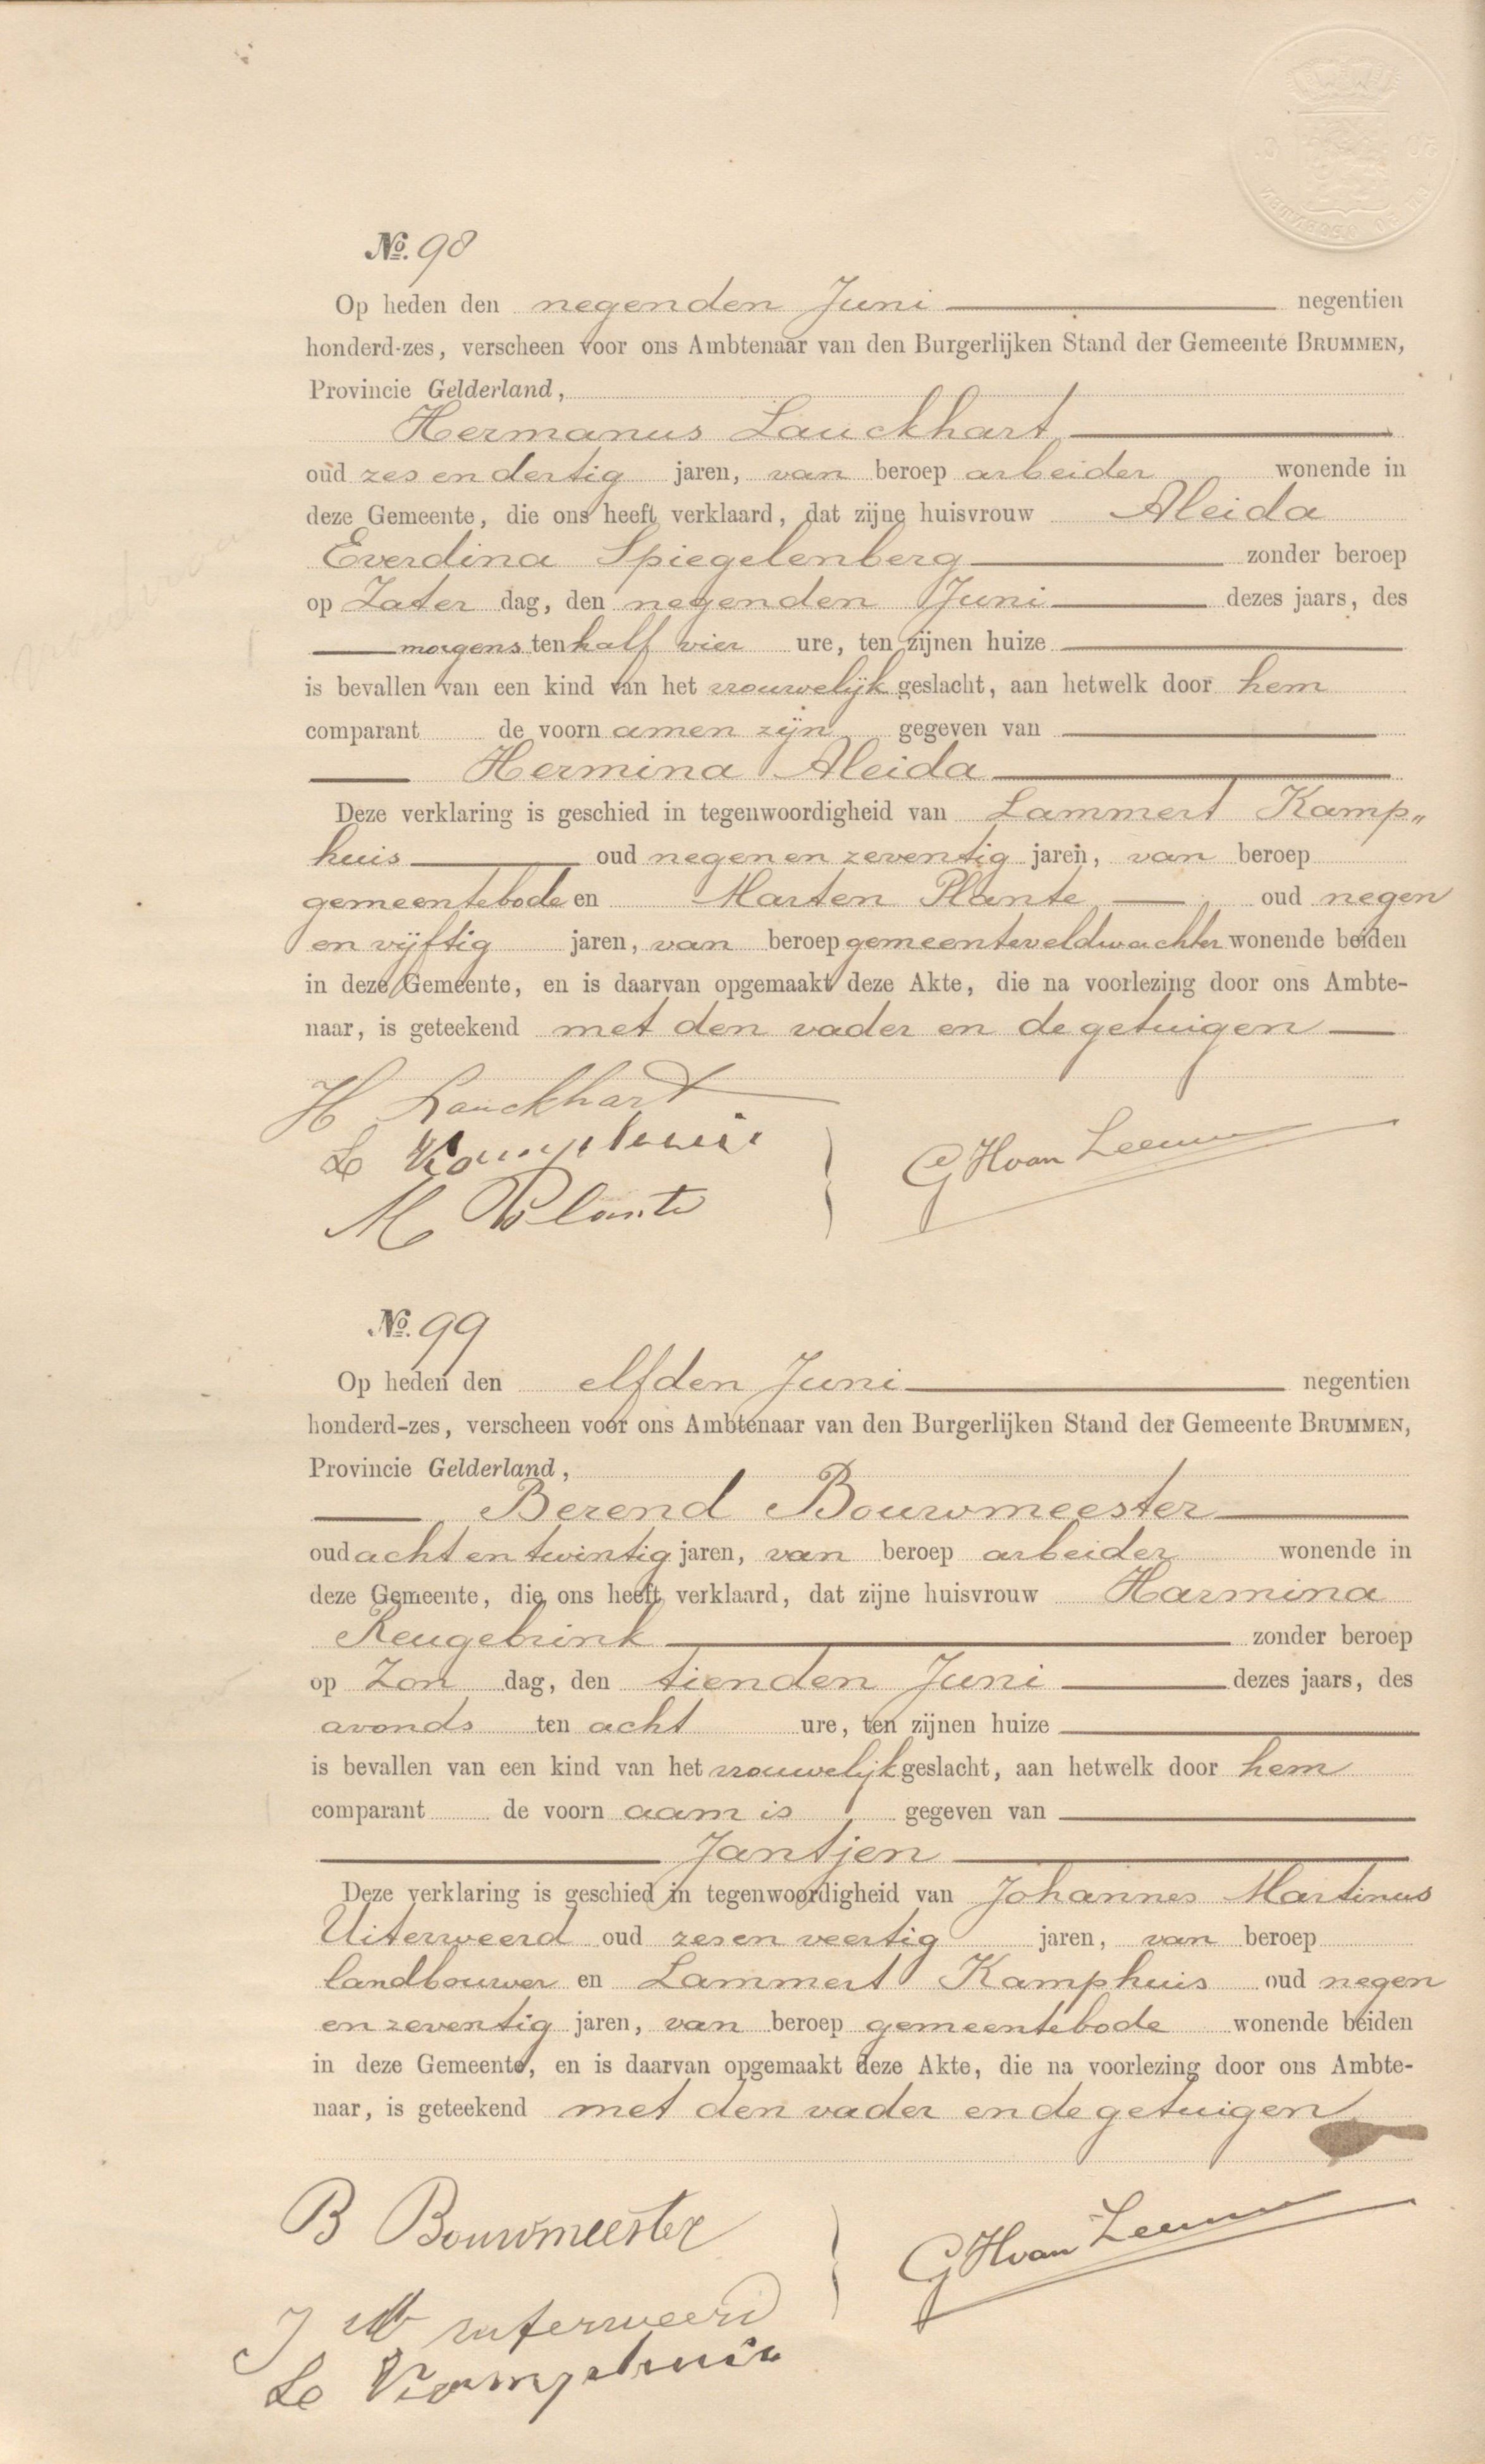 No. 98
Op heden den negenden Juni negentien
honderd-zes, verscheen voor ons Ambtenaar van den Burgerlijken Stand der Gemeente BRUMMEN,
Provincie Gelderland,
Hermanus Lauckhart
oud zes en dertig jaren, van beroep arbeider wonende in
deze Gemeente, die ons heeft verklaard, dat zijne huisvrouw Aleida
Everdina Spiegelenberg zonder beroep
op Zater dag, den negenden Juni dezes jaars, des
morgens ten half vier ure, ten zijnen huize
is bevallen van een kind van het vrouwelijk geslacht, aan hetwelk door hem
comparant de voorn amen zijn gegeven van
Hermina Aleida
Deze verklaring is geschied in tegenwoordigheid van Lammert Kamp„
huis oud negen en zeventig jaren, van beroep
gemeentebode en Marten Plante oud negen
en vijftig jaren, van beroep gemeenteveldwachter wonende beiden
in deze Gemeente, en is daarvan opgemaakt deze Akte, die na voorlezing door ons Ambte-
naar, is geteekend met den vader en de getuigen
H Lauckhart
L Kamphuis
M Plante
GHvan Leeuw
No. 99
Op heden den elfden Juni negentien
honderd-zes, verscheen voor ons Ambtenaar van den Burgerlijken Stand der Gemeente BRUMMEN,
Provincie Gelderland,
Berend Bouwmeester
oud acht en twintig jaren, van beroep arbeider wonende in
deze Gemeente, die ons heeft verklaard, dat zijne huisvrouw Harmina
Reugebrink zonder beroep
op Zon dag, den tienden Juni dezes jaars, des
avonds ten acht ure, ten zijnen huize
is bevallen van een kind van het vrouwelijk geslacht, aan hetwelk door hem
comparant de voorn aam is gegeven van
Jantjen
Deze verklaring is geschied in tegenwoordigheid van Johannes Martinus
Uiterweerd oud zes en veertig jaren, van beroep
landbouwer en Lammert Kamphuis oud negen
en zeventig jaren, van beroep gemeentebode wonende beiden
in deze Gemeente, en is daarvan opgemaakt deze Akte, die na voorlezing door ons Ambte-
naar, is geteekend met den vader en de getuigen
B Bouwmeester
J M uiterweerd
L Kamphuis
GHvan Leeuw